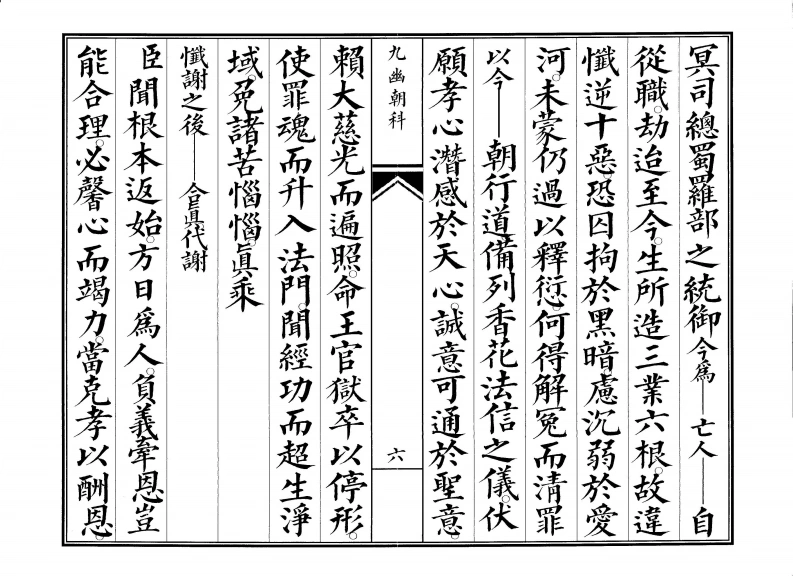 冥司總蜀羅部之統御今爲——亡人——自
從職。劫迨至今。生所造三業六根。故違
懺逆十惡。恐囚拘於黑暗慮沉弱於愛
河。未蒙仍過以釋愆。何得解冤而清罪
以今——朝行道備列香花法信之儀。伏
願孝心潛感於天心。誠意可通於聖意。
九幽朝科
六
賴大慈光而遍照。命王官獄卒以停形。
使罪魂而升入法門。聞經功而超生淨
域。免諸苦惱惱。眞乘
懺謝之後——合眞代謝
臣聞根本返始。方日爲人。負義辜恩豈
能合理。必馨心而竭力。當克孝以酬恩。